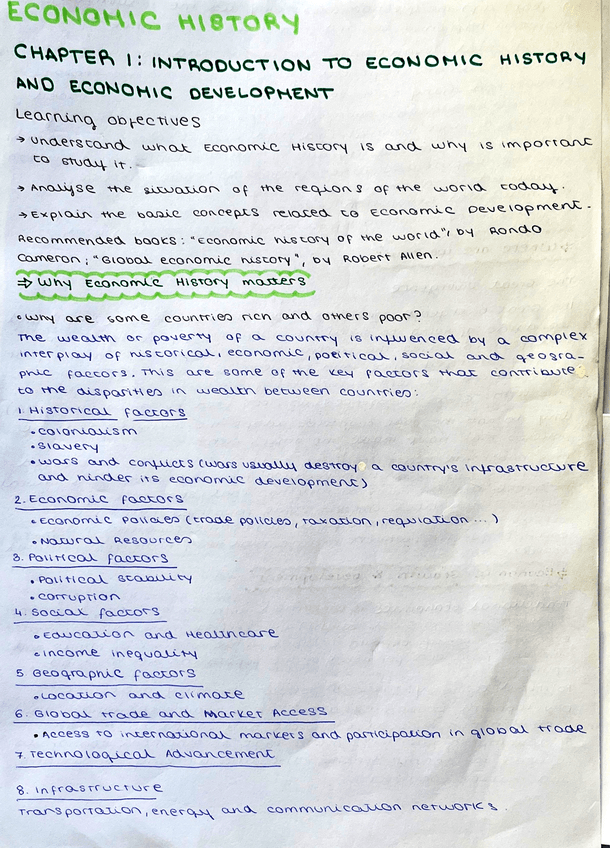 ECONOMIC HISTORY
CHAPTER 1: INTRODUCTION TO ECONOMIC HISTORY
AND ECONOMIC DEVELOPMENT
Learning objectives
→ Understand what Economic History is and why is important
to study it.
→ Analyse the situation of the regions of the world today.
→ Explain the basic concepts related to Economic Development.
Recommended books: "Economic history of the world", by Rondo
Cameron; "Global economic history", by Robert Allen.
⇒ Why Economic History matters
• Why are some countries rich and others poor?
The wealth or poverty of a country is influenced by a complex
interplay of historical, economic, political, social and geogra-
phic factors. This are some of the key factors that contribute
to the disparities in wealth between countries:
1. Historical factors
• Colonialism
• Slavery
• Wars and conflicts (wars usually destroy a country's infrastructure
and hinder its economic development)
2. Economic factors
• Economic Policies (trade policies, taxation, regulation ...)
• Natural Resources
3. Political factors
• Political stability
• Corruption
4. Social factors
• Education and Healthcare
• Income inequality
5 Geographic factors
• Location and climate
6. Global trade and Market Access
• Access to international markets and participation in global trade
7. Technological Advancement
8. Infrastructure
Transportation, energy and communication networks.